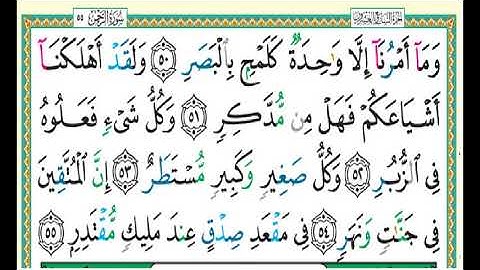 ٥٥ سُورَةُ الرَّحْمَٰن الجزء السابع والعشرون
وَمَآ أَمْرُنَآ إِلَّا وَٰحِدَةٌ كَلَمْحٍۭ بِٱلْبَصَرِ ٥٠ وَلَقَدْ أَهْلَكْنَآ
أَشْيَاعَكُمْ فَهَلْ مِن مُّدَّكِرٍ ٥١ وَكُلُّ شَىْءٍ فَعَلُوهُ
فِى ٱلزُّبُرِ ٥٢ وَكُلُّ صَغِيرٍ وَكَبِيرٍ مُّسْتَطَرٌ ٥٣ إِنَّ ٱلْمُتَّقِينَ
فِى جَنَّٰتٍ وَنَهَرٍ ٥٤ فِى مَقْعَدِ صِدْقٍ عِندَ مَلِيكٍ مُّقْتَدِرٍۭ ٥٥